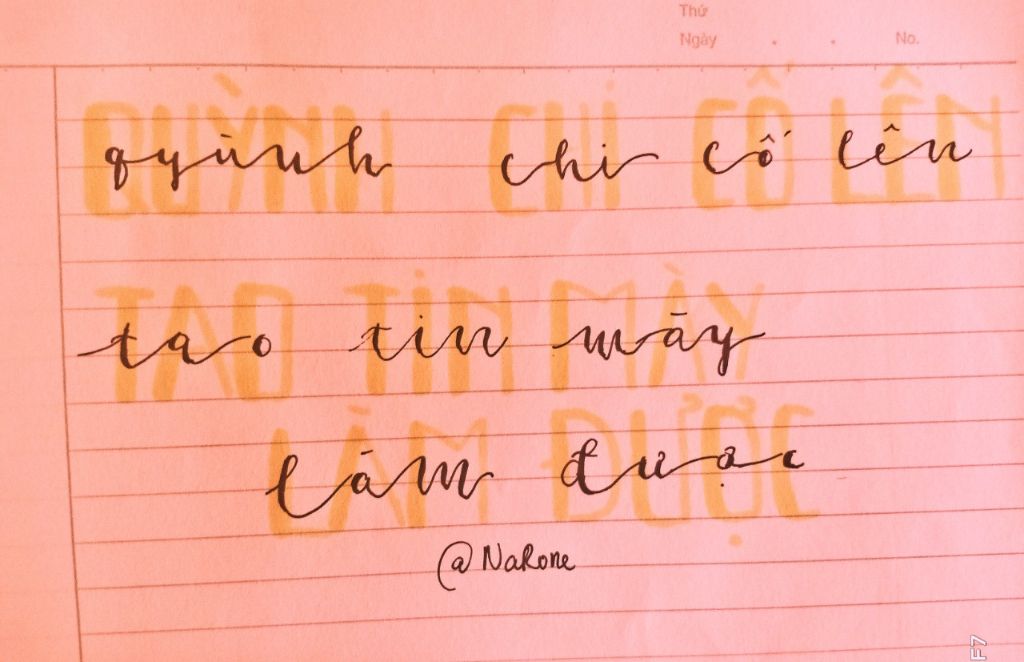 Thứ
Ngày . . No.
QUỲNH CHI CỐ LÊN
quỳnh chi cố lên
TAO TIN MÀY
tao tin mày
LÀM ĐƯỢC
làm được
@NaRone
F7